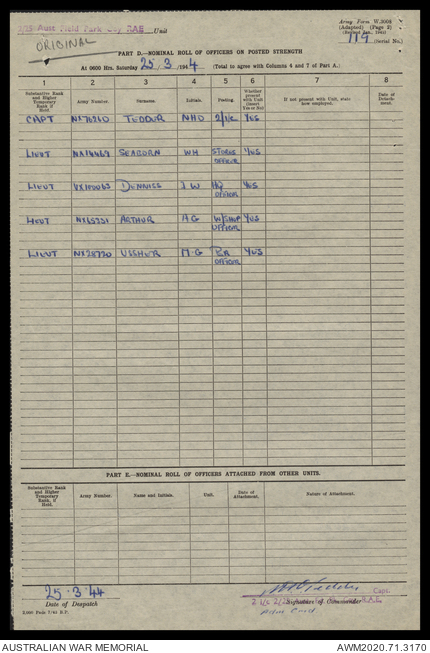 2/25 Aust Field Park Coy RAE Unit
ORIGINAL
Army Form W.3008
(Adapted) (Page 2)
(Revised Jan., 1943)
119 (Serial No.)
PART D.—NOMINAL ROLL OF OFFICERS ON POSTED STRENGTH
At 0600 Hrs. Saturday 25/3/1944 (Total to agree with Columns 4 and 7 of Part A.)
1 2 3 4 5 6 7 8
Substantive Rank and Higher Temporary Rank if Held. Army Number. Surname. Initials. Posting. Whether present with Unit (Insert Yes or No) If not present with Unit, state how employed. Date of Detachment.
CAPT NX76210 TEDDUR NHD 2/I/C YES
LIEUT NX14469 SEABORN WH STORES OFFICER YES
LIEUT VX100063 DENNISS J W HQ OFFICER YES
LIEUT NX65351 ARTHUR AG W/SHOP OFFICER YES
LIEUT NX28720 USSHER M.G OFFICER YES
PART E.—NOMINAL ROLL OF OFFICERS ATTACHED FROM OTHER UNITS.
Substantive Rank and Higher Temporary Rank, if Held. Army Number. Name and Initials. Unit. Date of Attachment. Nature of Attachment.
25.3.44
Date of Despatch
Capt.
Signature of Commander
AUSTRALIAN WAR MEMORIAL
AWM2020.71.3170